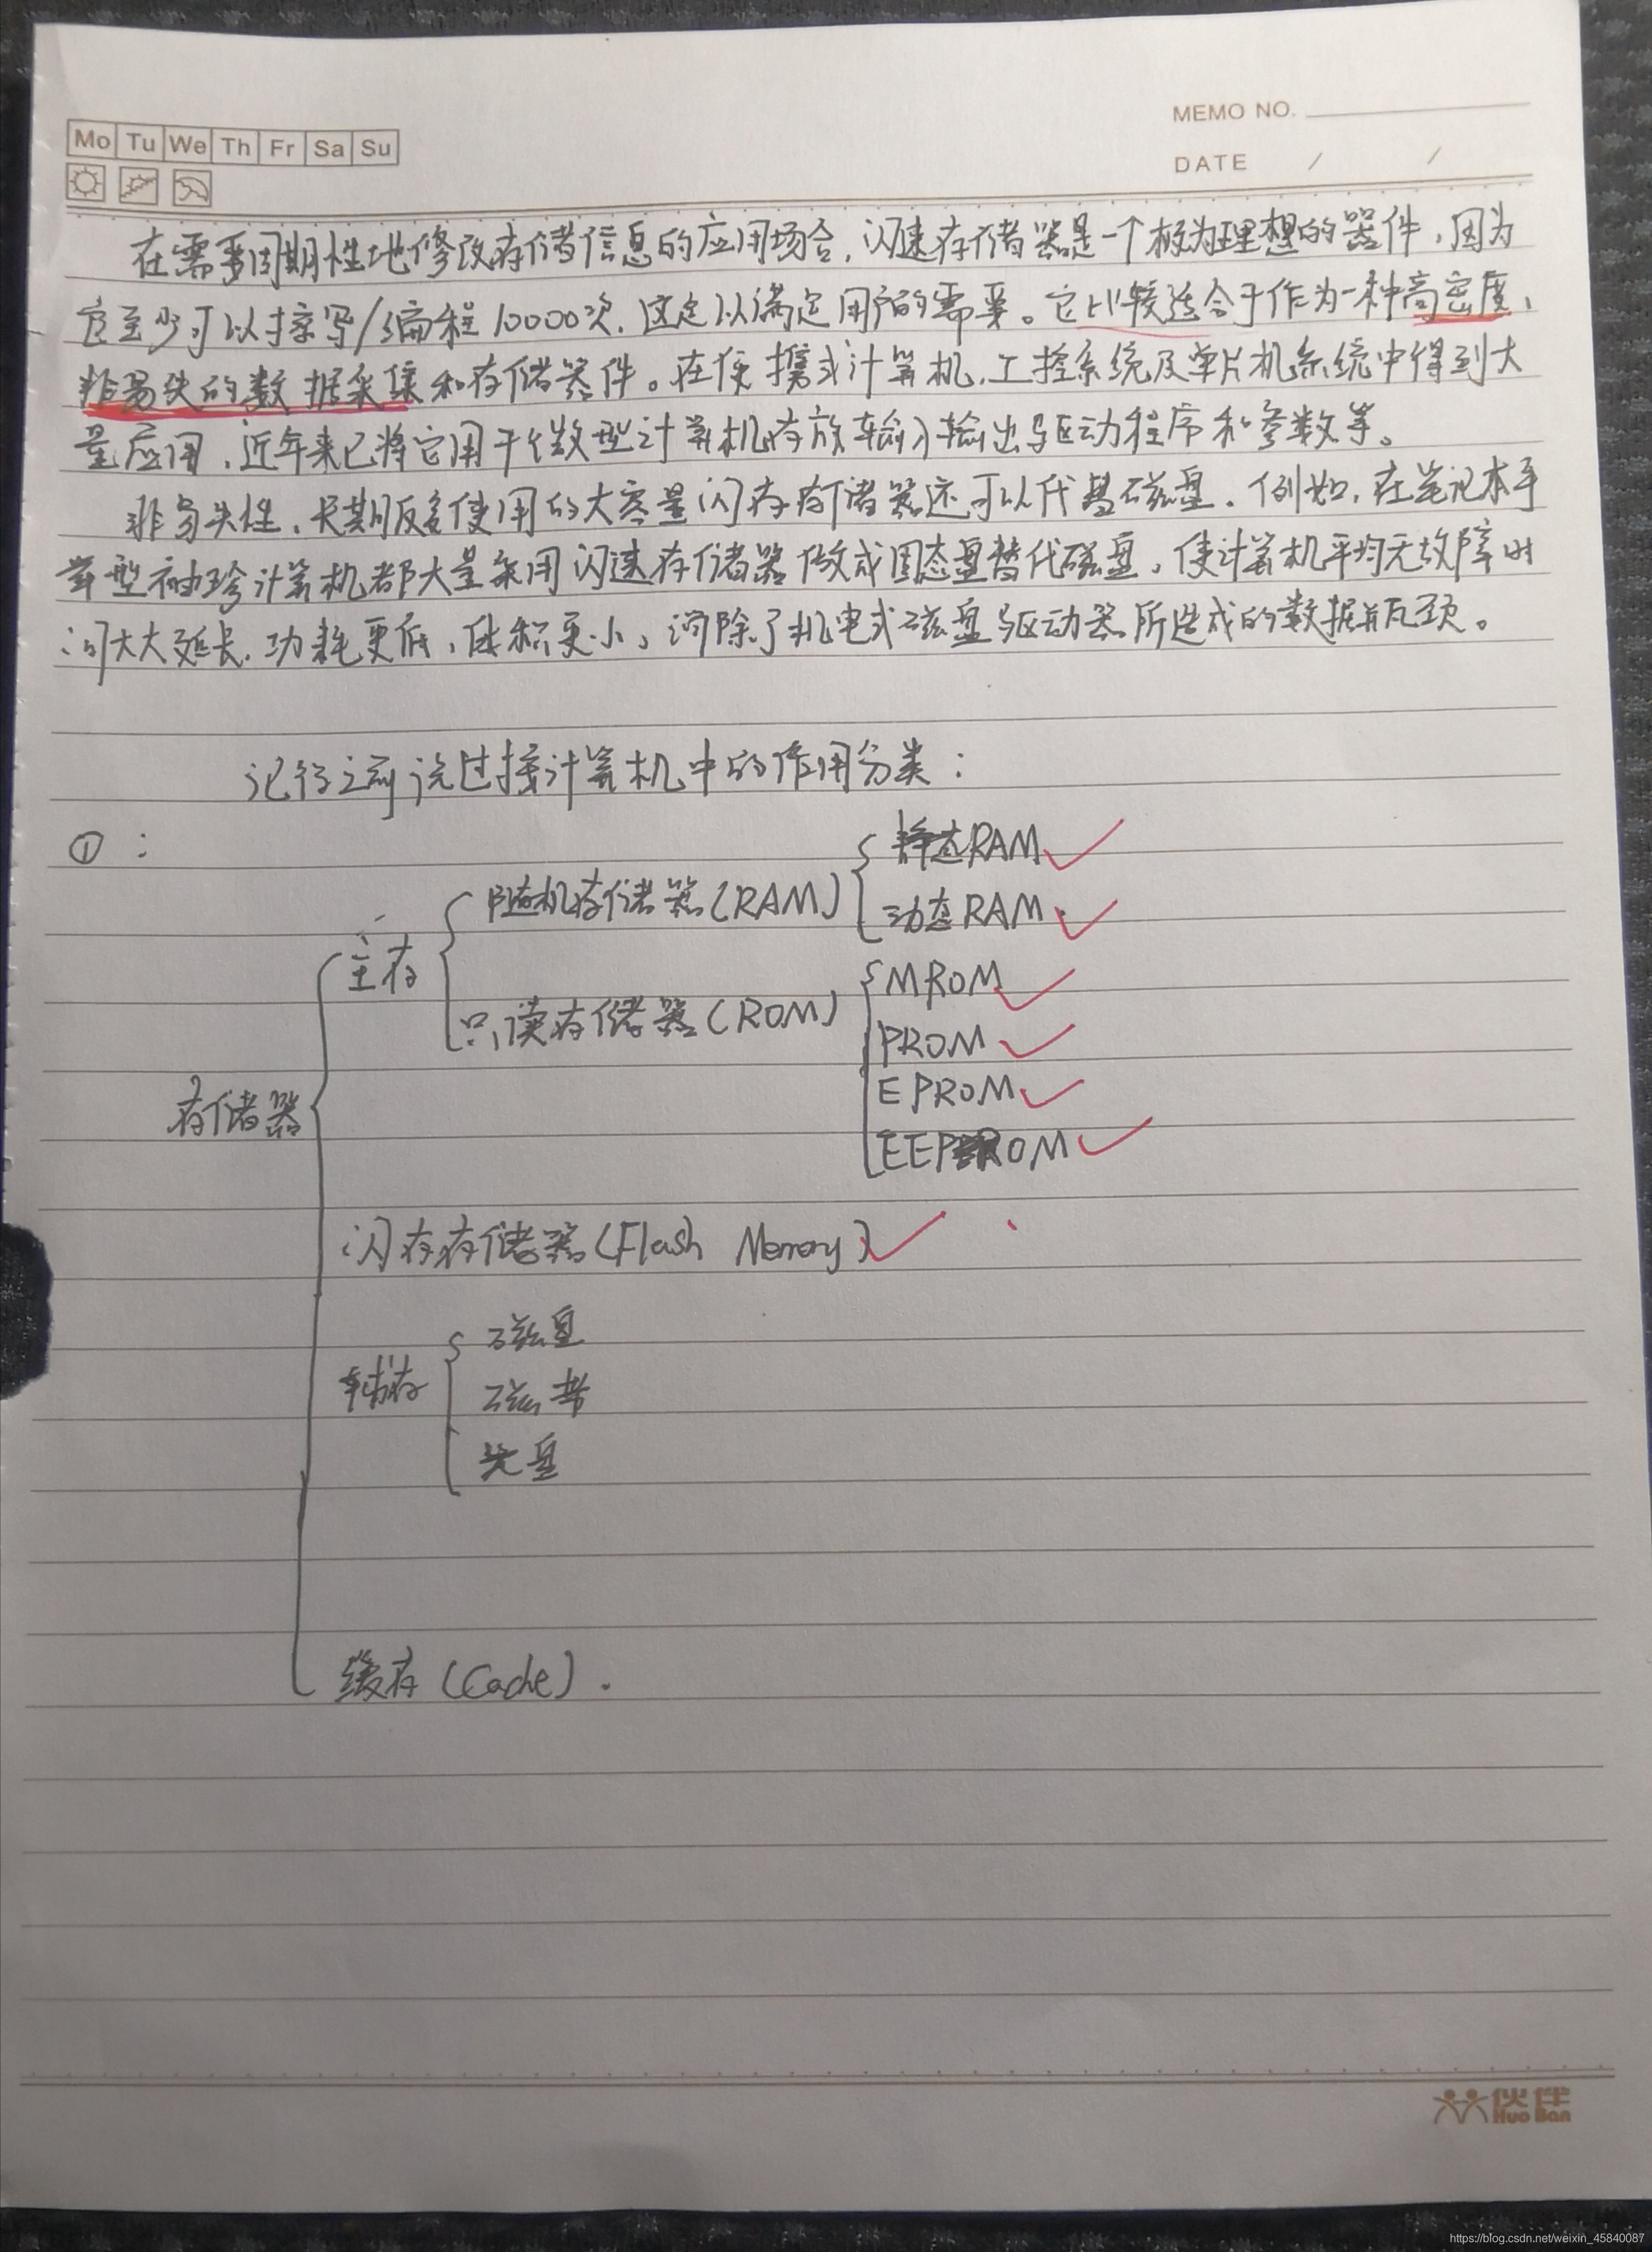 Mo Tu We Th Fr Sa Su
MEMO NO.
DATE / /
在需要周期性地修改存储信息的应用场合,闪速存储器是一个极为理想的器件,因为
它至少可以擦写/编程10000次,这足以满足用户的需要。它比较适合于作为一种高密度、
非易失的数据采集和存储器件。在便携式计算机、工控系统及单片机系统中得到大
量应用,近年来已将它用于微型计算机存放输入输出驱动程序和参数等。
非易失性、长期反复使用的大容量闪存存储器还可以代替磁盘。例如,在笔记本手
掌型袖珍计算机都大量采用闪速存储器做成固态盘替代磁盘,使计算机平均无故障时
间大大延长,功耗更低,体积更小,消除了机电式磁盘驱动器所造成的数据瓶颈。
记得之前说过按计算机中的作用分类:
①:
静态RAM
随机存储器(RAM)
动态RAM
主存
MROM
只读存储器(ROM)
PROM
EPROM
存储器
EEPROM
闪存存储器(Flash Memory)
磁盘
辅存
磁带
光盘
缓存(Cache).
伙伴
Huo Ban
https://blog.csdn.net/weixin_45840087